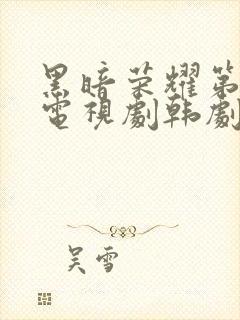 黑暗荣耀第
電視劇韩劇
吴雪